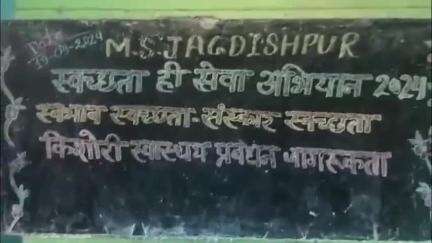 Date
19-09-2024
M.S. JAGDISHPUR
स्वच्छता ही सेवा अभियान 2024
स्वभाव स्वच्छता-संस्कार स्वच्छता
किशोरी स्वास्थय प्रबंधन जागरुकता